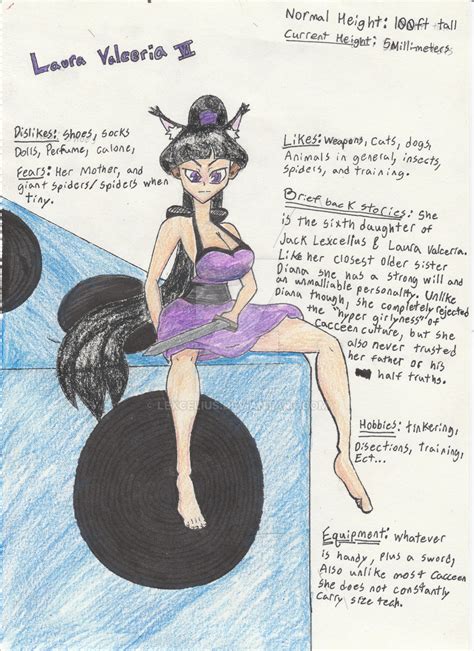 Normal Height: 100ft tall
Current Height: 5Milli-meters
Laura Valceria VI
Dislikes: Shoes, socks
Dolls, Perfume, calone,
Fears: Her Mother, and
giant spiders/spiders when
tiny.
Likes: Weapons, Cats, dogs,
Animals in general, insects,
Spiders, and training.
Brief back stories: She
is the sixth daughter of
Jack Lexcellus & Laura Valceria.
Like her closest older sister
Diana she has a strong will and
an unmalliable personality. Unlike
Diana though, she completely rejected
the "hyper girlyness" of
cacceen culture, but she
also never trusted
her father or his
half truths.
Hobbies: tinkering,
Disections, training,
Ect...
Equipment: whatever
is handy, Plus a sword,
Also unlike most Cacceen
she does not constantly
Carry size tech.